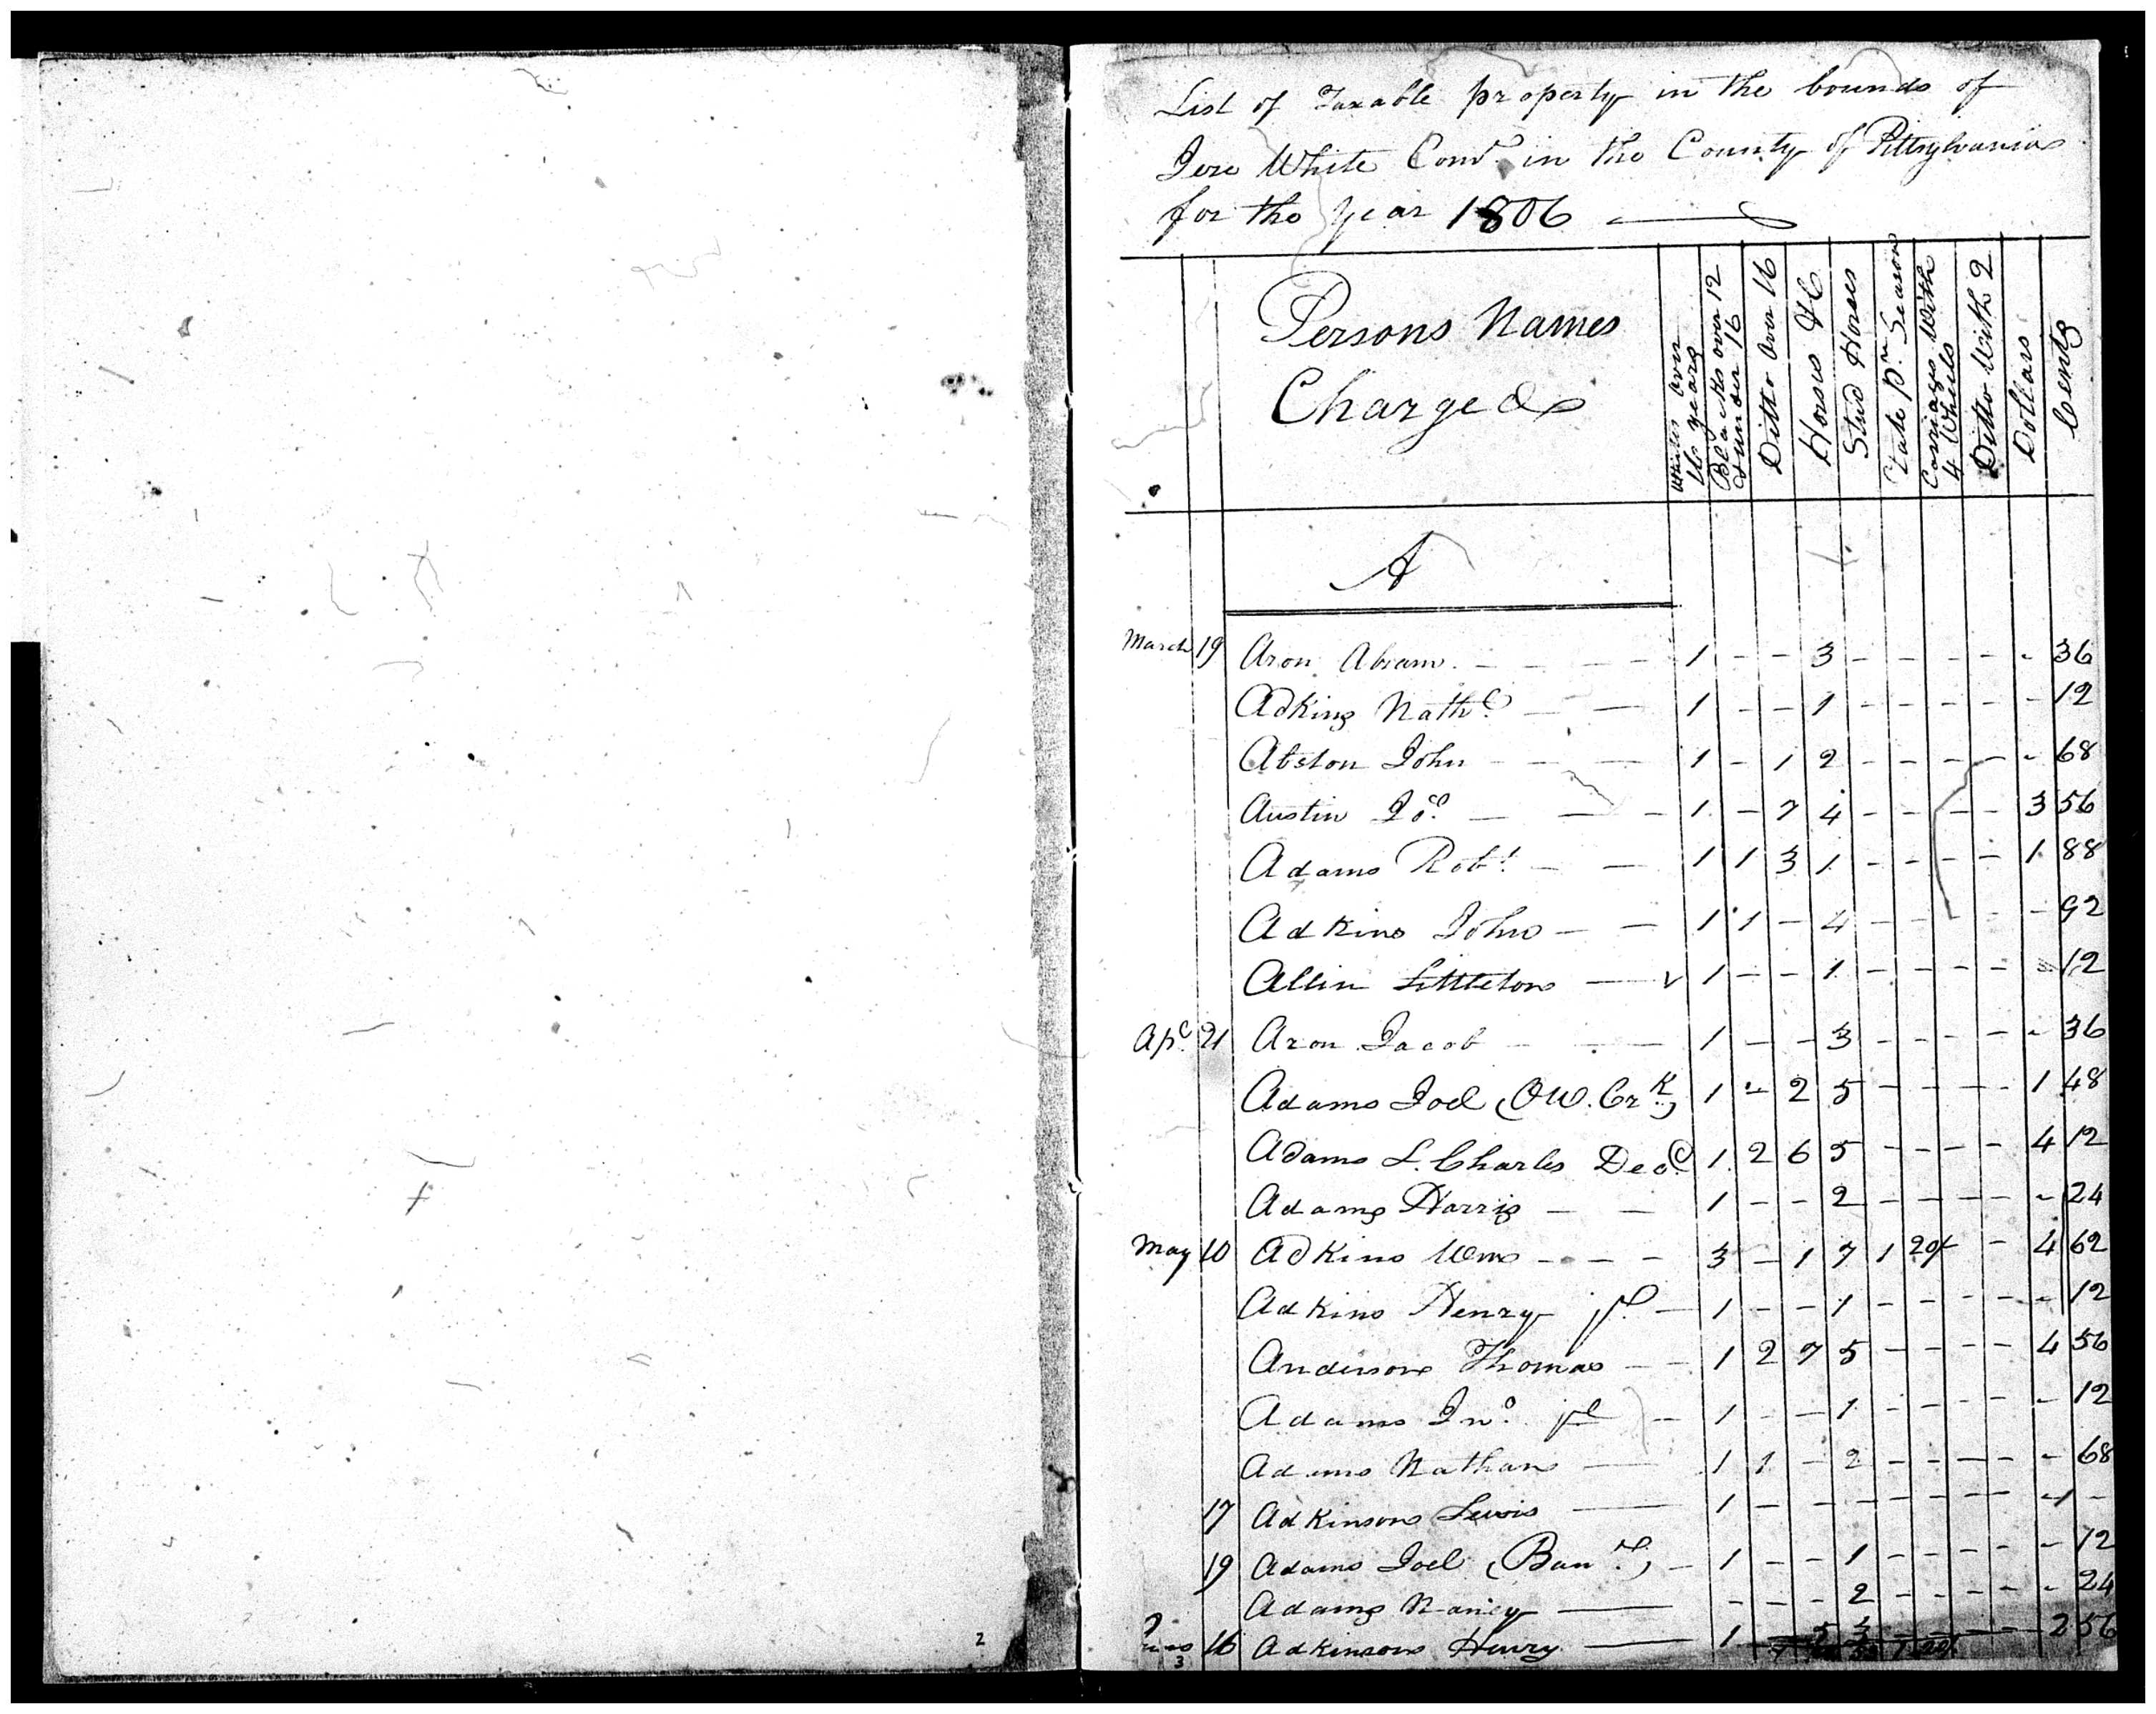 List of Taxable property in the bounds of
Jere White Comr. in the County of Pittsylvania
for the year 1806
Persons Names
Charged
Whites over
16 years
Blacks over 12
& under 16
Ditto over 16
Horses &C
Stud Horses
Rate Pr. Season
Carriages With
4 Wheels
Ditto With 2
Dollars
Cents
A
March 19 Aron Abram. - - - - 1 - - 3 - - - - - 36
Adkins Nathl. - - 1 - - 1 - - - - - 12
Abston John - - - 1 - 1 2 - - - - - 68
Austin Jos. - - - 1 - 7 4 - - - - 3 56
Adams Robt. - - 1 1 3 1 - - - - 1 88
Adkins John - - 1 1 - 4 - - - - - 92
Allin Littleton - v 1 - - 1 - - - - - 12
Apl. 21 Aron Jacob - - - 1 - - 3 - - - - - 36
Adams Joel (O W. Crk.) 1 - 2 5 - - - - 1 48
Adams L. Charles Decd. 1 2 6 5 - - - - 4 12
Adams Harris - - 1 - - 2 - - - - - 24
May 10 Adkins Wm - - - 3 - 1 7 1 20/ - 4 62
Adkins Henry jr. - 1 - - 1 - - - - - 12
Anderson Thomas - - 1 2 7 5 - - - - 4 56
Adams Jno. jr - 1 - - 1 - - - - - 12
Adams Nathan - 1 1 - 2 - - - - - 68
17 Adkinson Lewis - 1 - - - - - - - - -
19 Adams Joel (Banr.) - 1 - - 1 - - - - - 12
Adams Nancy - - - - 2 - - - - - 24
16 Adkinson Henry - 1 - 5 3 - - - - 2 56
2
3